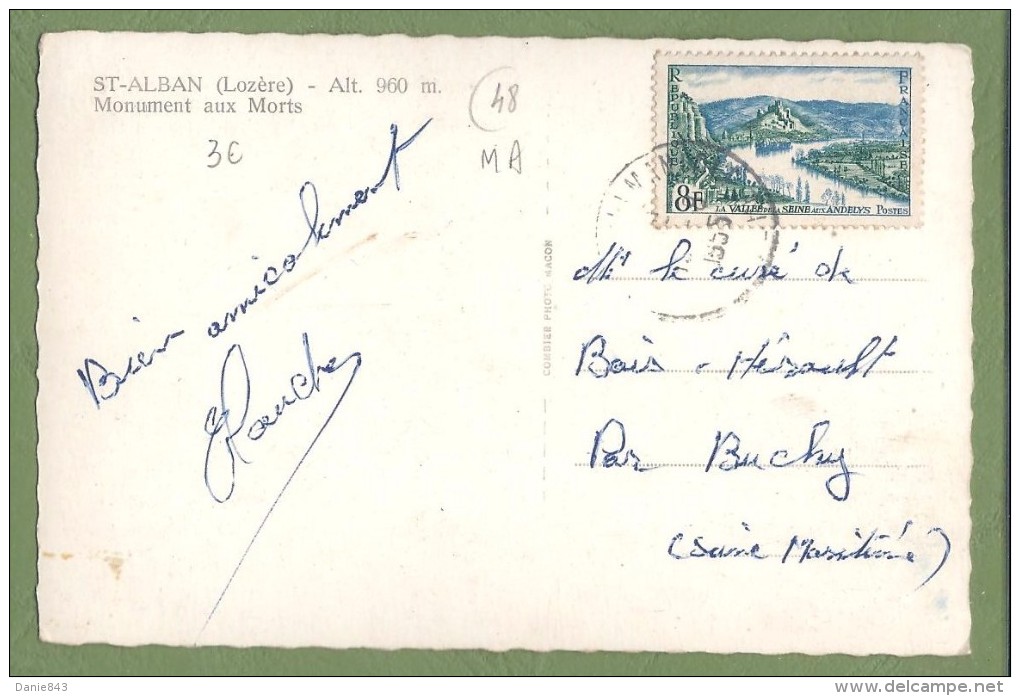 ST-ALBAN (Lozère) - Alt. 960 m.
Monument aux Morts
3€
48
MA
RÉPUBLIQUE
FRANÇAISE
8F
LA VALLÉE DE LA SEINE AUX ANDELYS POSTES
1955
Bien amicalement
COMBIER PHOTO MACON
Mr le curé de
Bois-Hérault
Par Buchy
(Seine Maritime)
Danie843
delcampe.net